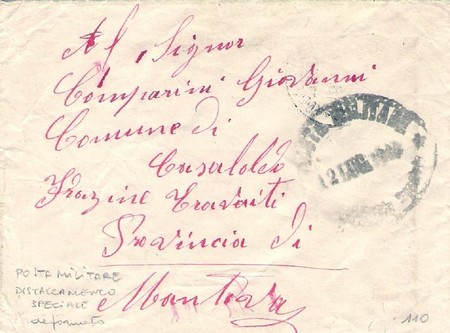 Al Signor
Comparini Giovanni
Comune di
Casaloldo
Frazine Travaiti
Provincia di
Mantova
POSTA MILITARE
DISTACCAMENTO
SPECIALE
deformato
POSTA MILITARE
12 LUG
110